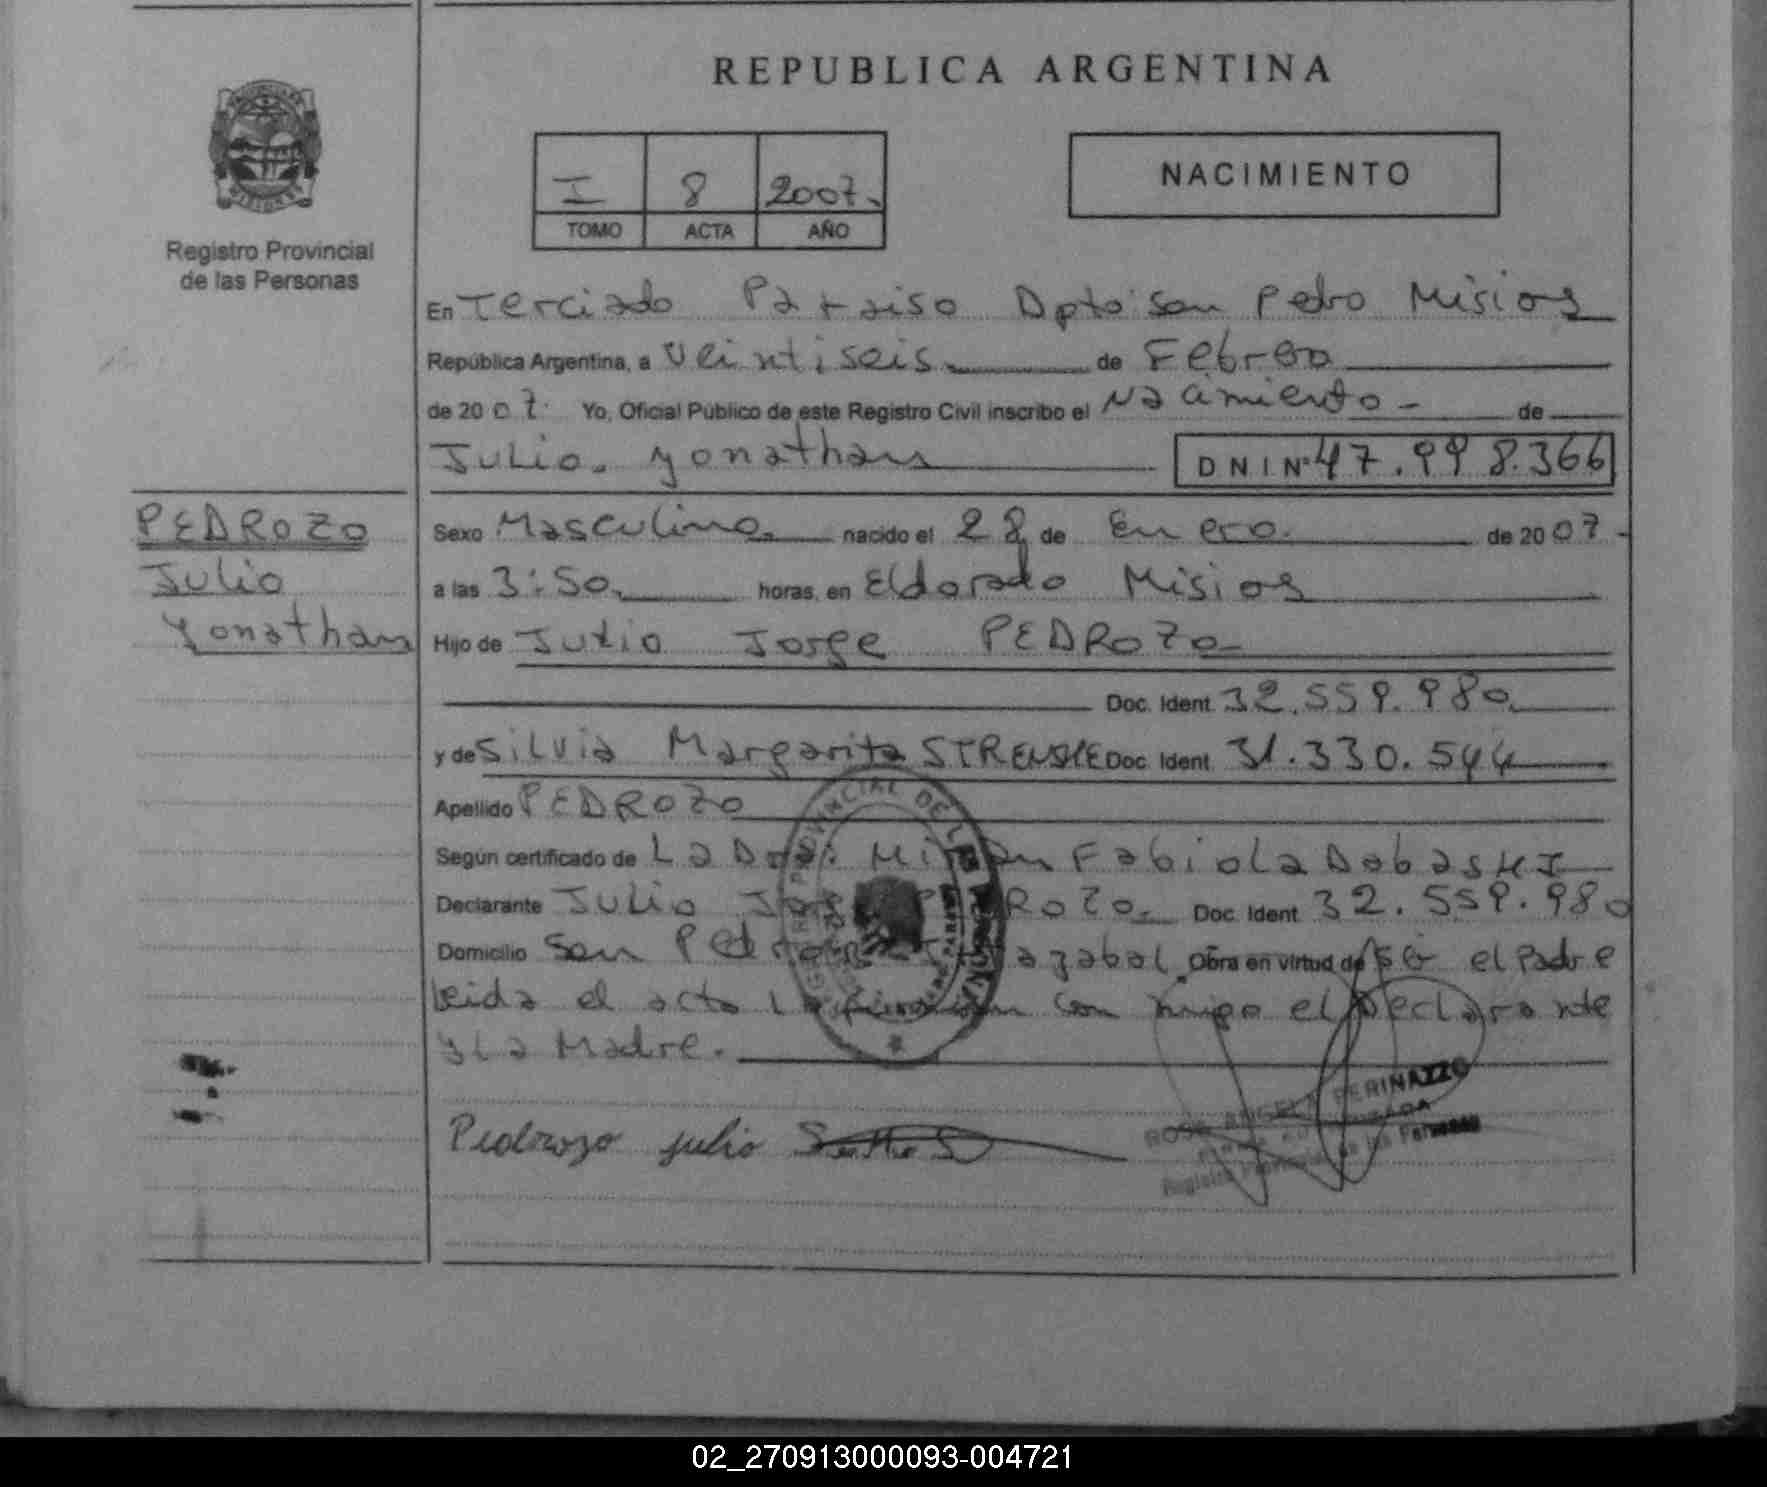 REPUBLICA ARGENTINA
PROVINCIA DE
MISIONES
Registro Provincial
de las Personas
I 8 2007.
TOMO ACTA AÑO
NACIMIENTO
En Terciado Paraiso Dpto San Pedro Misiones
República Argentina, a Veintiseis de Febrero
de 2007. Yo, Oficial Público de este Registro Civil inscribo el Nacimiento - de
Julio. Yonathan DNI Nº 47.998.366
PEDROZO
Julio
Yonathan
Sexo Masculino. nacido el 28 de Enero. de 2007-
a las 3:50. horas, en Eldorado Misiones
Hijo de Julio Jorge PEDROZO
Doc. Ident. 32.559.980
y de Silvia Margarita Doc. Ident. 31.330.544
Apellido PEDROZO
Según certificado de La Dra: Miriam Fabiola
Declarante Julio Jorge PEDROZO. Doc. Ident. 32.559.980
Domicilio San Pedro Obra en virtud de ser el Padre
leida el acta la firman con migo el Declarante
y La Madre.
Pedrozo Julio
ROSA ANGELA PERINAZZO
Registro Provincial de las Personas
02_270913000093-004721